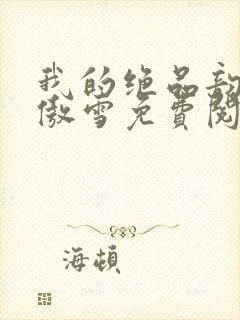 我的绝品
傲雪免费阅
海頓